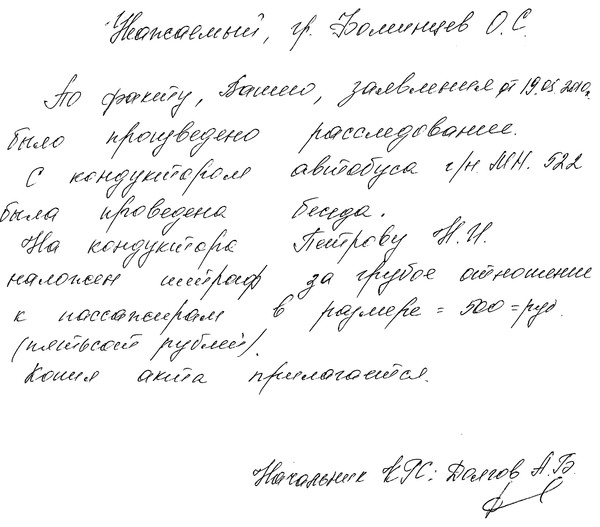 Уважаемый, гр. Боминцев О.С.
По факту, Вашего, заявления от 19.05.2010г.
было произведено расследование.
С кондуктором автобуса г/н. МН. 522
была проведена беседа.
На кондуктора Петрову Н.И.
наложен штраф за грубое отношение
к пассажирам в размере = 500 = руб.
(пятьсот рублей).
Копия акта прилагается.
Начальник КРС: Долгов А.Б.